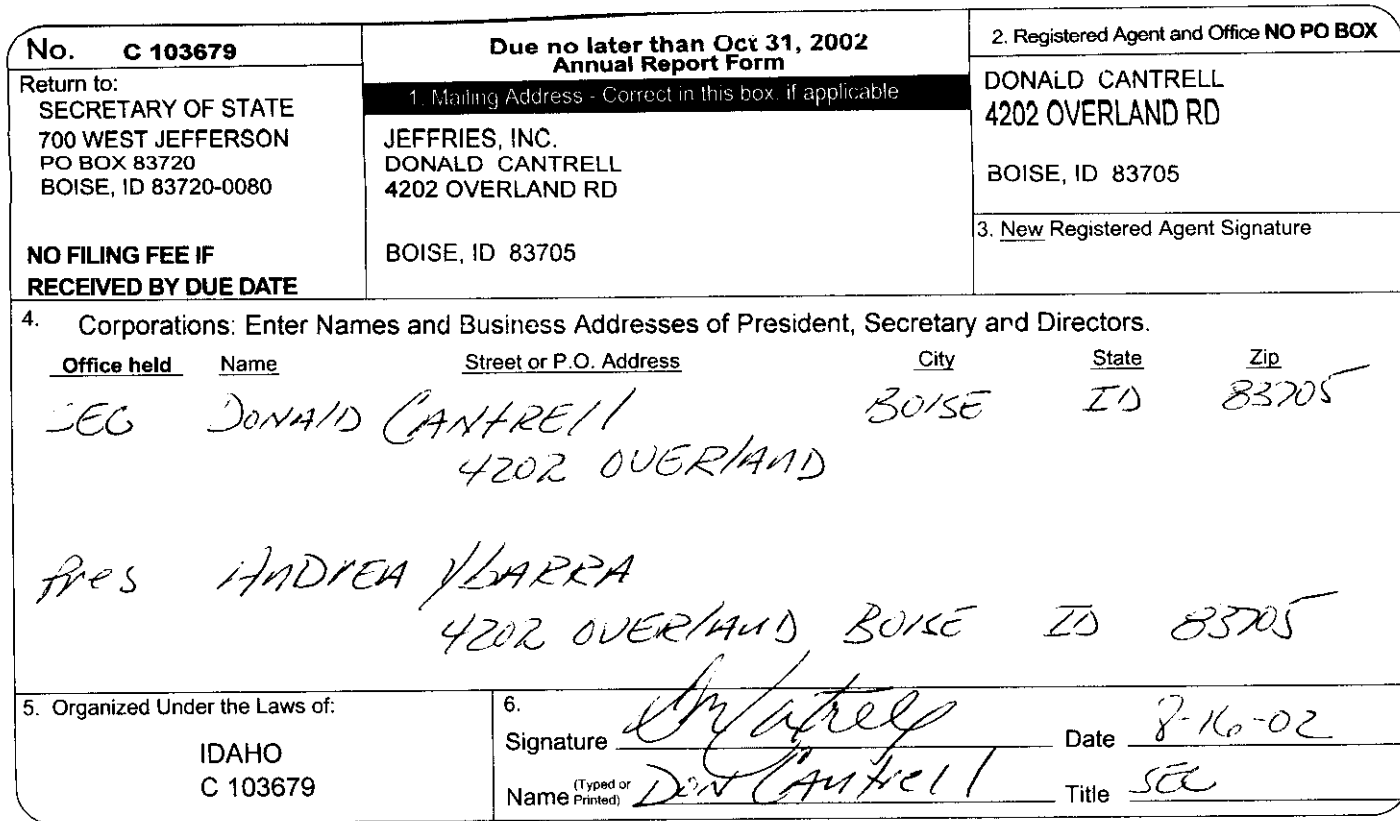 No. C 103679
Return to:
SECRETARY OF STATE
700 WEST JEFFERSON
PO BOX 83720
BOISE, ID 83720-0080
NO FILING FEE IF
RECEIVED BY DUE DATE
Due no later than Oct 31, 2002
Annual Report Form
1. Mailing Address - Correct in this box, if applicable
JEFFRIES, INC.
DONALD CANTRELL
4202 OVERLAND RD
BOISE, ID 83705
2. Registered Agent and Office NO PO BOX
DONALD CANTRELL
4202 OVERLAND RD
BOISE, ID 83705
3. New Registered Agent Signature
4. Corporations: Enter Names and Business Addresses of President, Secretary and Directors.
Office held Name Street or P.O. Address City State Zip
SEC DONALD CANTRELL BOISE ID 83705
4202 OVERLAND
Pres ANDREA YBARRA
4202 OVERLAND BOISE ID 83705
5. Organized Under the Laws of:
IDAHO
C 103679
6.
Signature Date 8-16-02
Name (Typed or Printed) Don Cantrell Title SEC